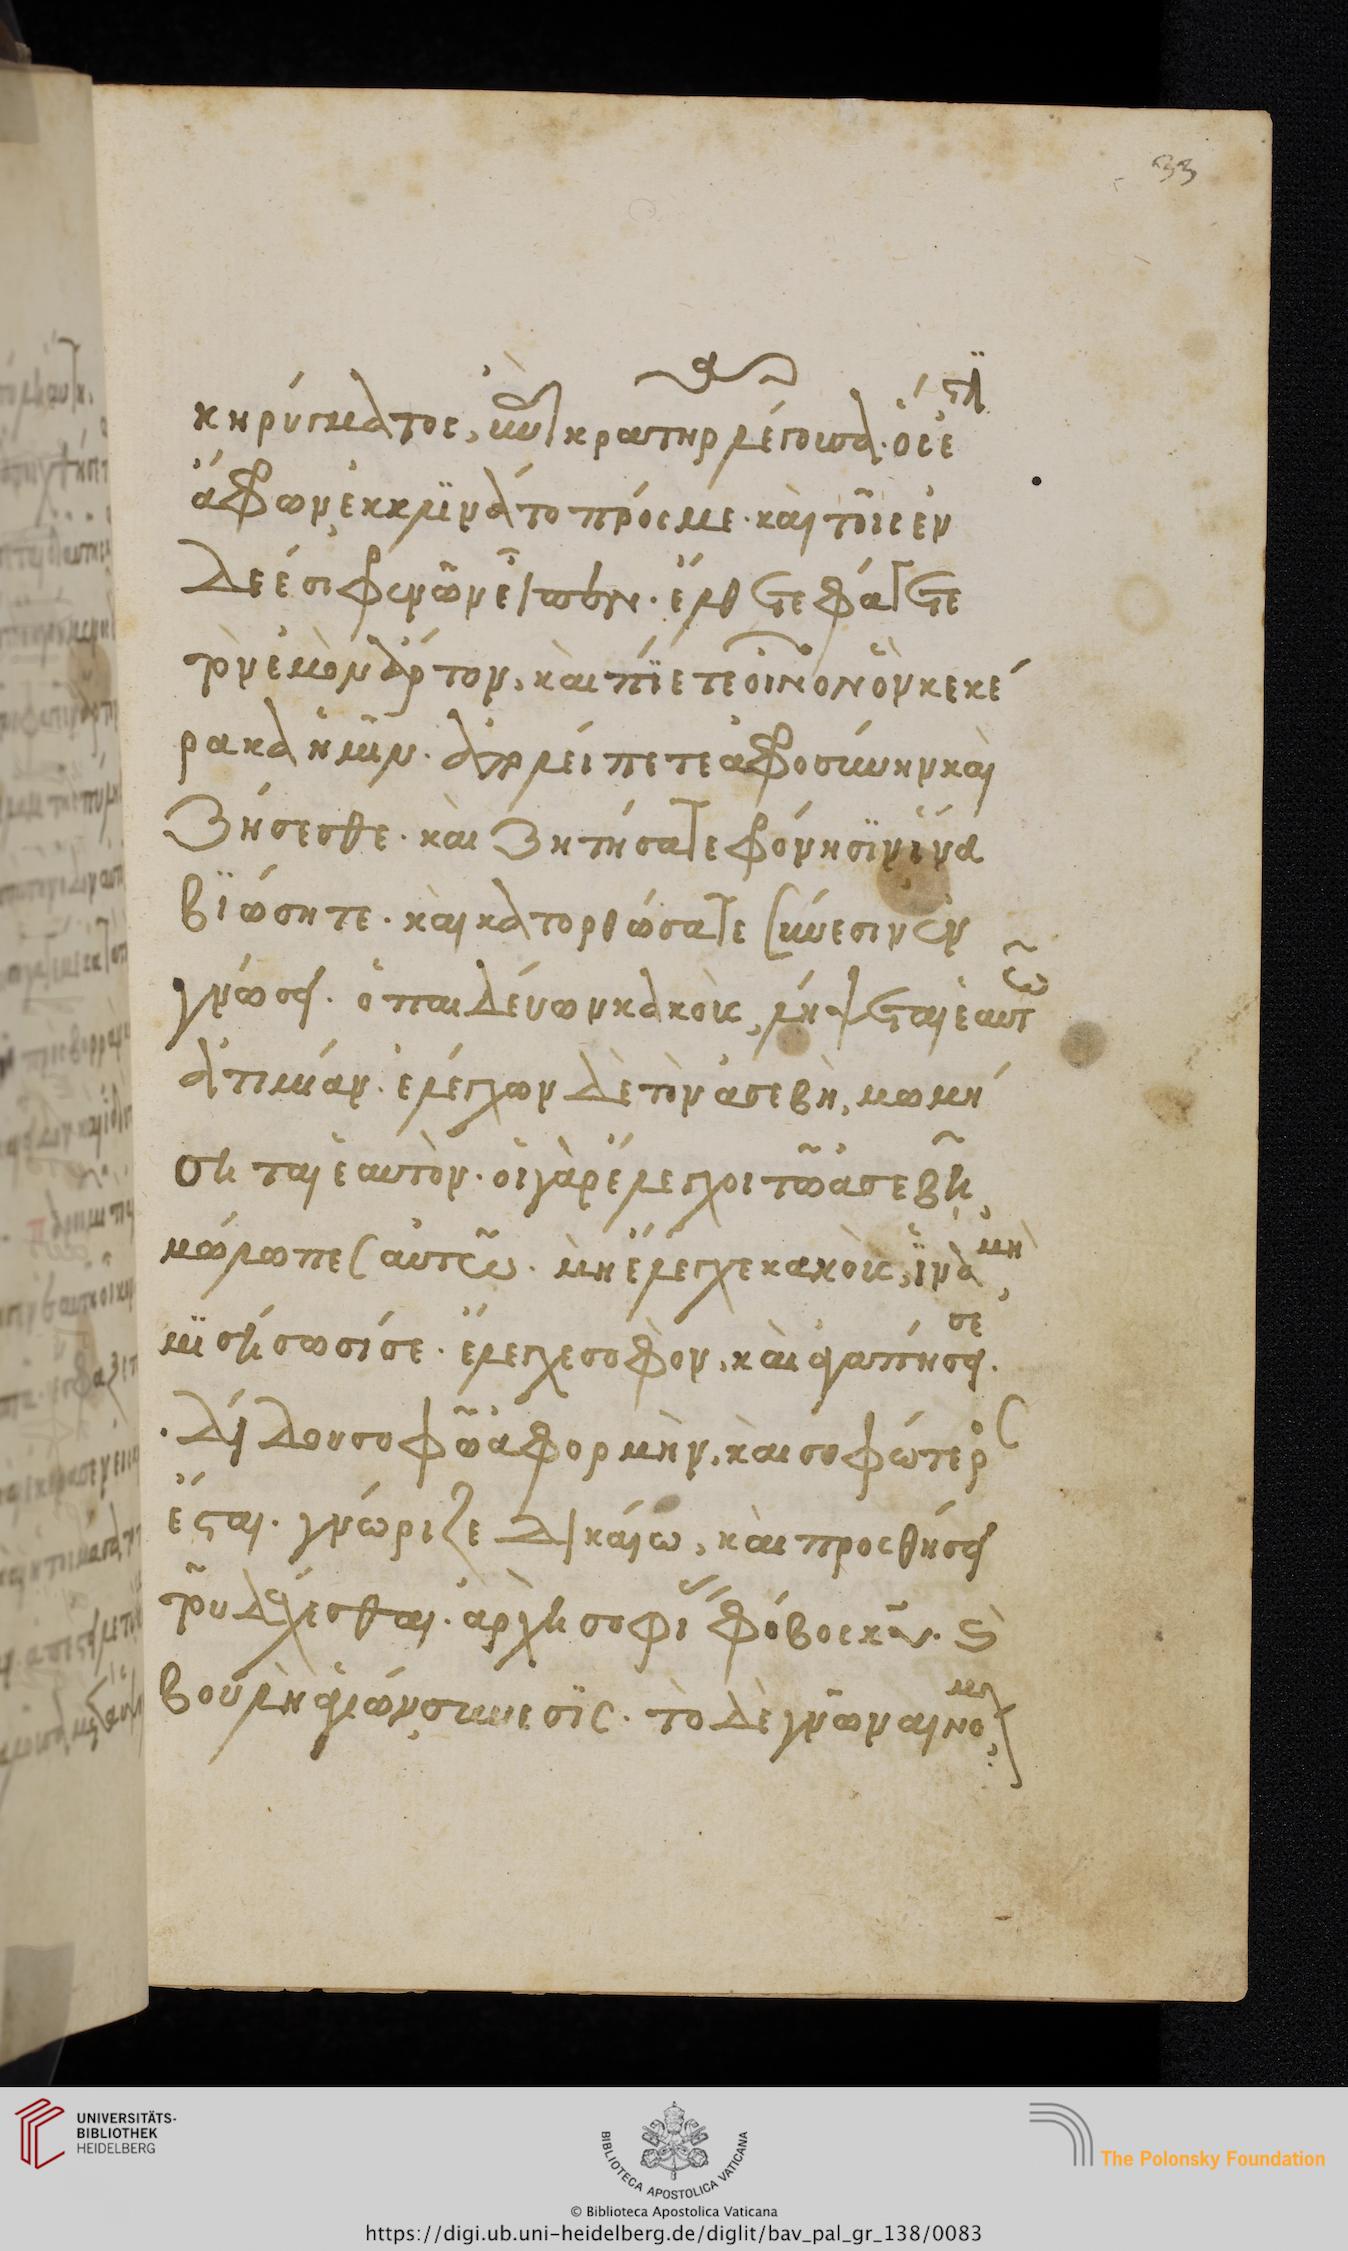 33
κηρύγματος, ἐπὶ κρατῆρα λέγουσα· ὅς ἐστιν
ἄφρων ἐκκλινάτο πρός με· καὶ τοῖς ἐν
δεέσι φρενῶν εἶπεν· ἔλθετε φάγετε
τὸν ἐμὸν ἄρτον, καὶ πίετε οἶνον ὃν κεκέ
ρακα ἡμῖν· ἀπολείπετε ἀφροσύνην καὶ
ζήσεσθε· καὶ ζητήσατε φρόνησιν ἵνα
βιώσητε· καὶ κατορθώσατε σύνεσιν ἐν
γνώσει· ὁ παιδεύων κακοὺς, λήψεται ἑαυτῶ
ἀτιμίαν· ἐλέγχων δὲ τὸν ἀσεβῆ, μωμή
σεται ἑαυτόν· οἱ γὰρ ἔλεγχοι τῶ ἀσεβεῖ,
μώλωπες αὐτῶ· μὴ ἔλεγχε κακοὺς, ἵνα μὴ
μισήσωσί σε· ἔλεγχε σοφὸν, καὶ ἀγαπήσει σε·
δίδου σοφῶ ἀφορμὴν, καὶ σοφώτερος
ἔσται· γνώριζε δικαίω, καὶ προσθήσει
τοῦ δέχεσθαι· ἀρχὴ σοφίας φόβος κυρίου· καὶ
βουλὴ ἁγίων σύνεσις· τὸ δὲ γνῶναι νόμον
UNIVERSITÄTS-
BIBLIOTHEK
HEIDELBERG
BIBLIOTECA APOSTOLICA VATICANA
The Polonsky Foundation
© Biblioteca Apostolica Vaticana
https://digi.ub.uni-heidelberg.de/diglit/bav_pal_gr_138/0083